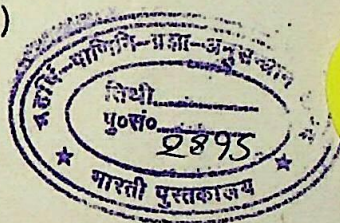 )
महर्षि-पाणिनि-प्रज्ञा-अनुसन्धान
तिथी..............
पु०सं०..............
2895
भारती पुस्तकालय